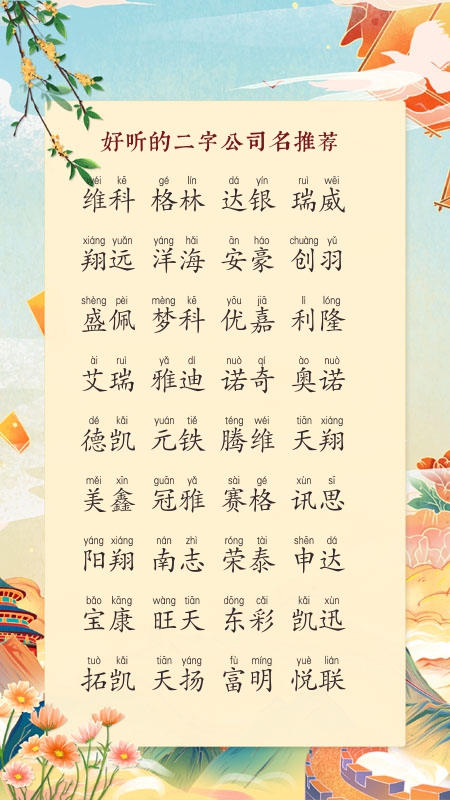 好听的二字公司名推荐
wéi kē gé lín dá yín ruì wēi
维科 格林 达银 瑞威
xiáng yuǎn yáng hǎi ān háo chuàng yǔ
翔远 洋海 安豪 创羽
shèng pèi mèng kē yōu jiā lì lóng
盛佩 梦科 优嘉 利隆
ài ruì yǎ dí nuò qí ào nuò
艾瑞 雅迪 诺奇 奥诺
dé kǎi yuán tiě téng wéi tiān xiáng
德凯 元铁 腾维 天翔
měi xīn guān yǎ sài gé xùn sī
美鑫 冠雅 赛格 讯思
yáng xiáng nán zhì róng tài shēn dá
阳翔 南志 荣泰 申达
bǎo kāng wàng tiān dōng cǎi kǎi xùn
宝康 旺天 东彩 凯迅
tuò kǎi tiān yáng fù míng yuè lián
拓凯 天扬 富明 悦联